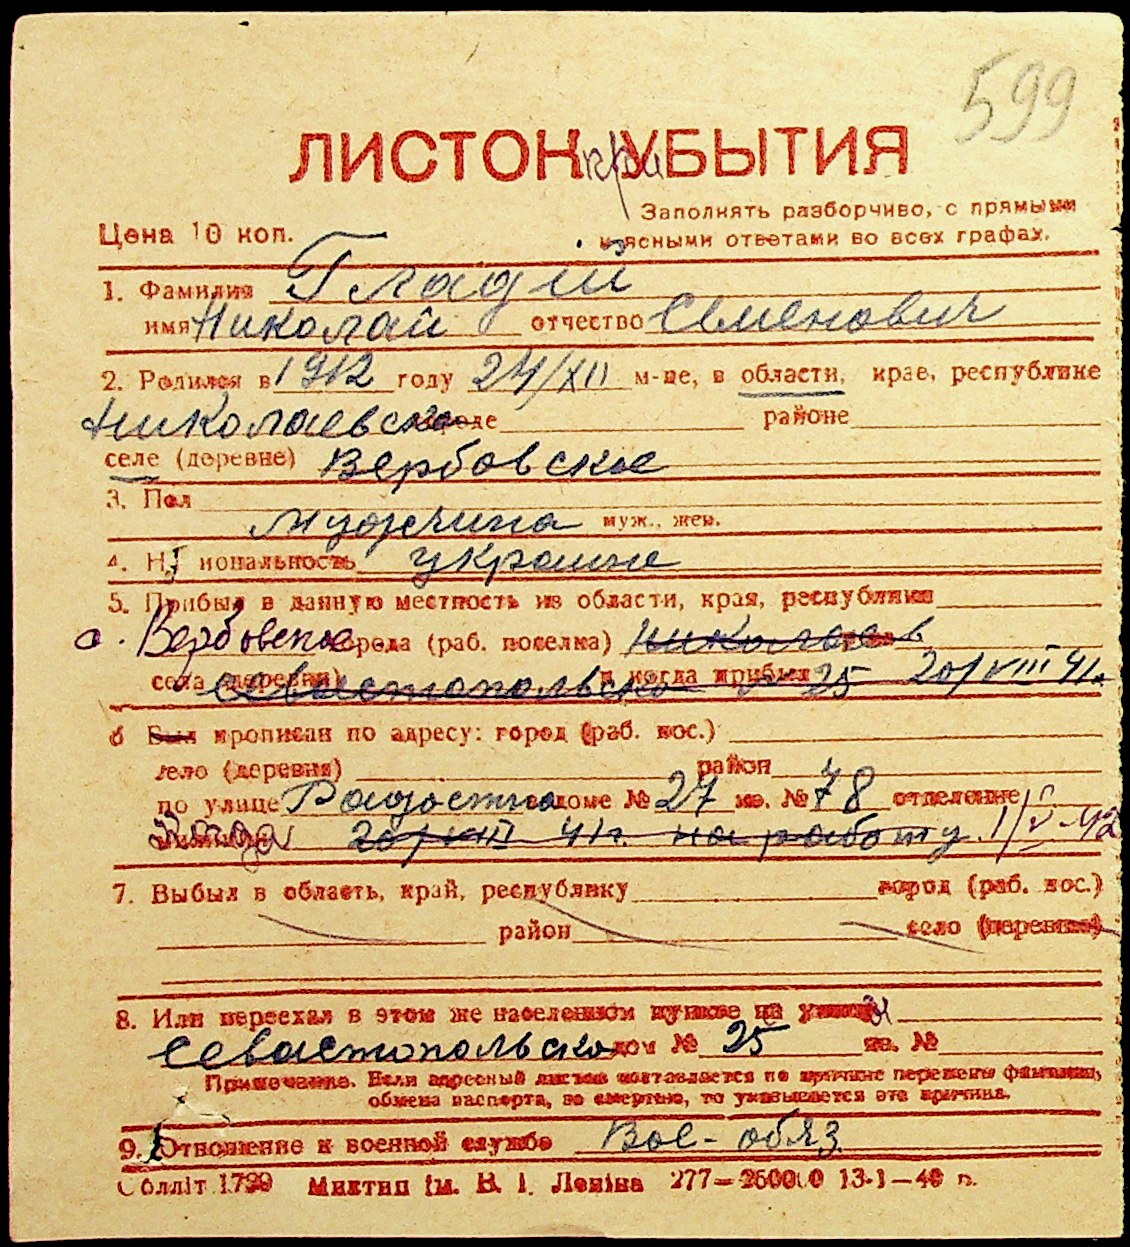 599
ЛИСТОК при УБЫТИЯ
Заполнять разборчиво, с прямыми
Цена 10 коп.
и ясными ответами во всех графах.
1. Фамилия Гладий
имя Николай отчество Семенович
2. Родился в 1912 году 24/XII м-це, в области, крае, республике
Николаевско городе районе
селе (деревне) Вербовское
3. Пол
мужчина муж., жен.
4. Национальность украине
5. Прибыл в данную местность из области, края, республики
с. Вербовское города (раб. поселка) Николаев
села (деревни) Севастопольско и когда прибыл 25 20/VIII 41г.
6 Был прописан по адресу: город (раб. пос.)
село (деревня) район
по улице Радостно доме № 27 кв. № 78 отделение
20/VIII 41г. на работу. 1/V-42
7. Выбыл в область, край, республику город (раб. пос.)
район село (деревню)
8. Или переехал в этом же населенном пункте на улицу
Севастопольско дом № 25 кв. №
Примечание. Если адресный листок составляется по причине перемены фамилии,
обмена паспорта, за смертью, то указывается эта причина.
9. Отношение к военной службе Вое-обяз.
Облліт 1790 Миктип ім. В. І. Леніна 277—250000 13-1—40 р.